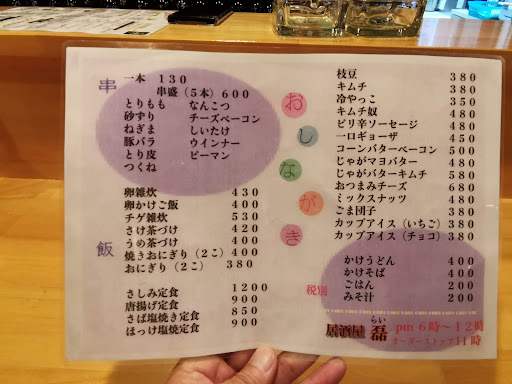 串
一本 130
串盛(5本)600
とりもも なんこつ
砂ずり チーズベーコン
ねぎま しいたけ
豚バラ ウインナー
とり皮 ピーマン
つくね
飯
卵雑炊 430
卵かけご飯 400
チゲ雑炊 530
さけ茶づけ 420
うめ茶づけ 400
焼きおにぎり(2こ) 400
おにぎり(2こ) 380
さしみ定食 1200
唐揚げ定食 900
さば塩焼き定食 850
ほっけ塩焼定食 900
おしながき
枝豆 380
キムチ 380
冷やっこ 350
キムチ奴 480
ピリ辛ソーセージ 480
一口ギョーザ 450
コーンバターベーコン 500
じゃがマヨバター 480
じゃがバターキムチ 580
おつまみチーズ 680
ミックスナッツ 480
ごま団子 380
カップアイス(いちご) 380
カップアイス(チョコ) 380
かけうどん 400
かけそば 400
ごはん 200
みそ汁 200
税別
らい
居酒屋 磊 pm 6時~12時
オーダーストップ11時